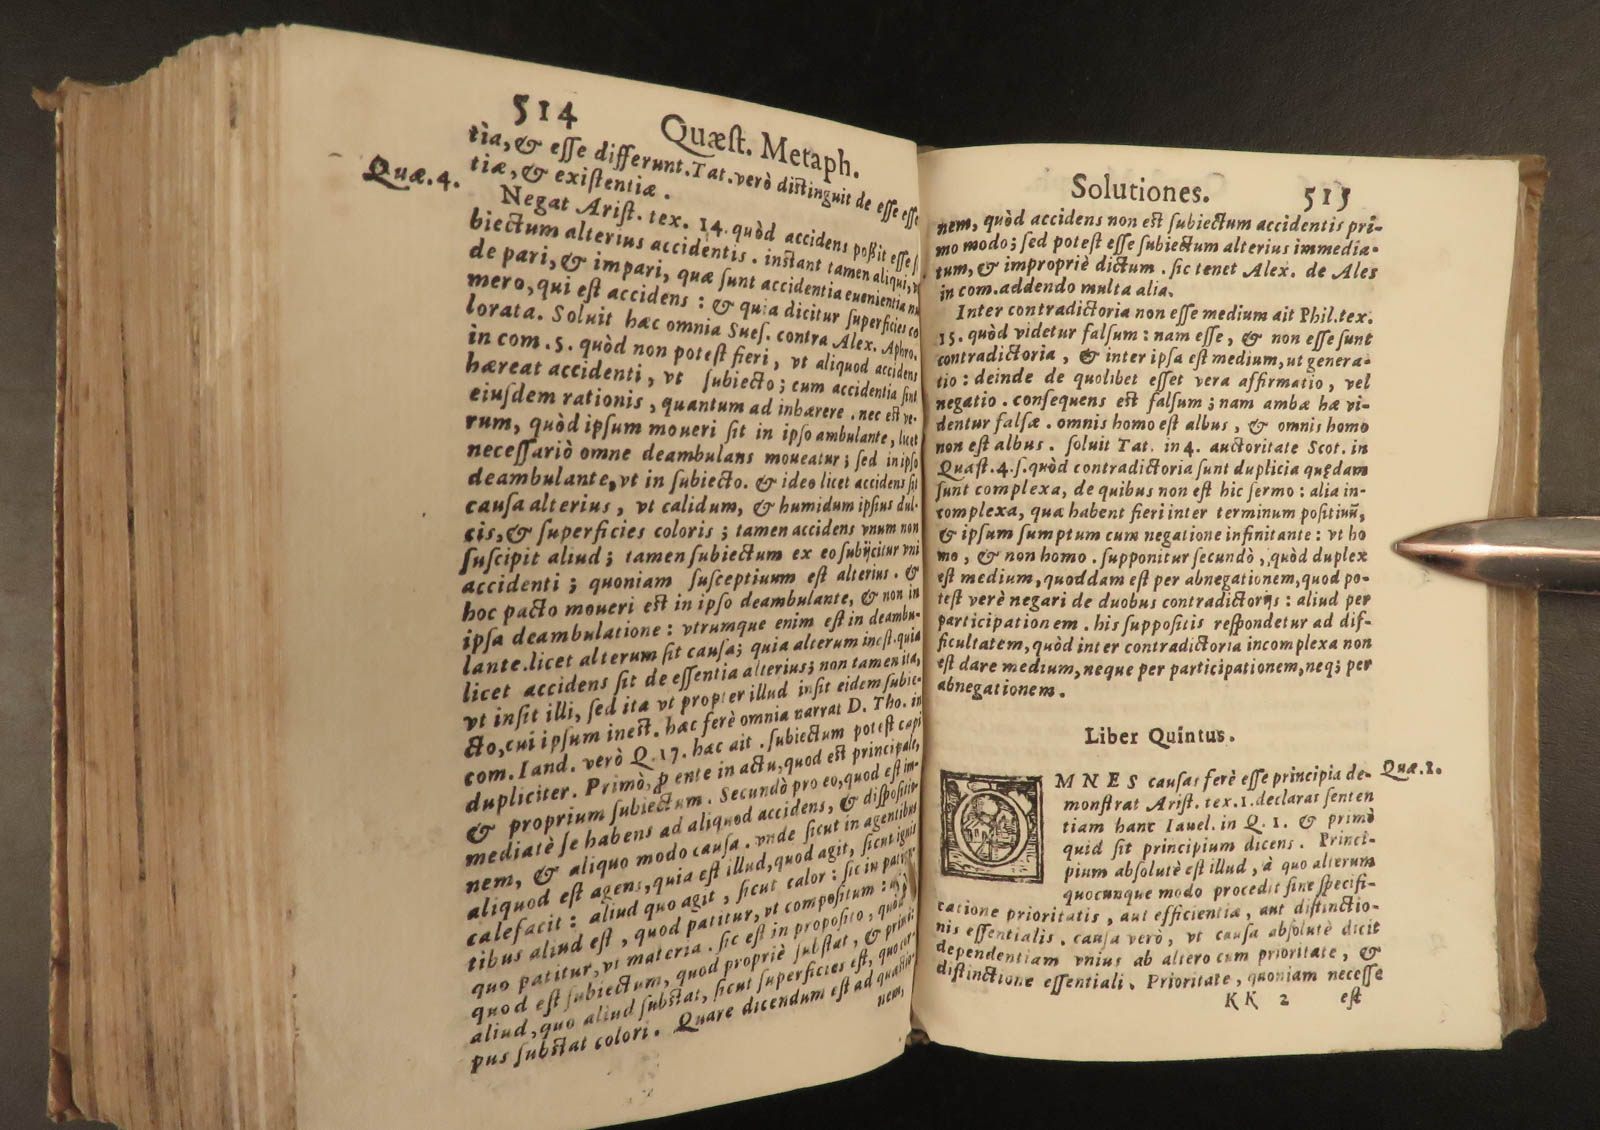 514 Quæst. Metaph.
tia, & esse differunt. Tat. verò distinguit de esse esse
tiæ, & existentiæ.
Quæ. 4.
Negat Arist. tex. 14. quòd accidens poßit esse s
biectum alterius accidentis. instant tamen aliqui,
de pari, & impari, quæ sunt accidentia euenientia nu
mero, qui est accidens: & quia dicitur superficies co
lorata. Soluit hæc omnia Sues. contra Alex. Aphro.
in com. 5. quòd non potest fieri, vt aliquod accidens
hæreat accidenti, vt subiecto; cum accidentia sint
eiusdem rationis, quantum ad inhærere. nec est ve-
rum, quòd ipsum moueri sit in ipso ambulante, licet
necessariò omne deambulans moueatur; sed in ipso
deambulante, vt in subiecto. & ideo licet accidens sit
causa alterius, vt calidum, & humidum ipsius dul-
cis, & superficies coloris; tamen accidens vnum non
suscipit aliud; tamen subiectum ex eo subijcitur vni
accidenti; quoniam susceptiuum est alterius. &
hoc pacto moueri est in ipso deambulante, & non in
ipsa deambulatione: vtrumque enim est in deambu-
lante. licet alterum sit causa; quia alterum inest. quia
licet accidens sit de essentia alterius; non tamen ita,
vt insit illi, sed ita vt propter illud insit eidem subie-
cto, cui ipsum inest. hæc ferè omnia narrat D. Tho. in
com. Iand. verò Q. 17. hæc ait. subiectum potest capi
dupliciter. Primò, p̱ ente in actu, quod est principale,
& proprium subiectum. Secundò pro eo, quod est im-
mediatè se habens ad aliquod accidens, & dispositio-
nem, & aliquo modo causa. vnde sicut in agentibus
aliquod est agens, quia est illud, quod agit, sicut ignis
calefacit: aliud quo agit, sicut calor: sic in patien-
tibus aliud est, quod patitur, vt compositum:
quo patitur, vt materia. sic est in proposito, quòd
quod est subiectum, quod propriè substat, &
aliud, quo aliud substat, sicut superficies est, quo cor-
pus substat colori. Quare dicendum est ad quæstio-
nem,
Solutiones. 515
nem, quòd accidens non est subiectum accidentis pri-
mo modo; sed potest esse subiectum alterius immedia-
tum, & impropriè dictum. sic tenet Alex. de Ales
in com. addendo multa alia.
Inter contradictoria non esse medium ait Phil. tex.
15. quòd videtur falsum: nam esse, & non esse sunt
contradictoria, & inter ipsa est medium, ut genera-
tio: deinde de quolibet esset vera affirmatio, vel
negatio. consequens est falsum; nam ambæ hæ vi-
dentur falsæ. omnis homo est albus, & omnis homo
non est albus. soluit Tat. in 4. auctoritate Scot. in
Quæst. 4. s. quòd contradictoria sunt duplicia quędam
sunt complexa, de quibus non est hic sermo: alia in-
complexa, quæ habent fieri inter terminum positiuũ,
& ipsum sumptum cum negatione infinitante: vt ho
mo, & non homo. supponitur secundò, quòd duplex
est medium, quoddam est per abnegationem, quod po-
test verè negari de duobus contradictorijs: aliud per
participationem. his suppositis respondetur ad dif-
ficultatem, quòd inter contradictoria incomplexa non
est dare medium, neque per participationem, neq; per
abnegationem.
Liber Quintus.
OMNES causas ferè esse principia de-
Quæ. 1.
monstrat Arist. tex. 1. declarat senten
tiam hanc Iauel. in Q. 1. & primò
quid sit principium dicens. Princi-
pium absolutè est illud, à quo alterum
quocunque modo procedit sine specifi-
catione prioritatis, aut efficientiæ, aut distinctio-
nis essentialis. causa verò, vt causa absolutè dicit
dependentiam vnius ab altero cum prioritate, &
distinctione essentiali. Prioritate, quoniam necesse
KK 2 est